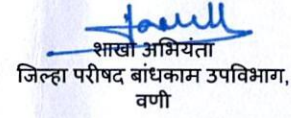 शाखा अभियंता
जिल्हा परीषद बांधकाम उपविभाग,
वणी